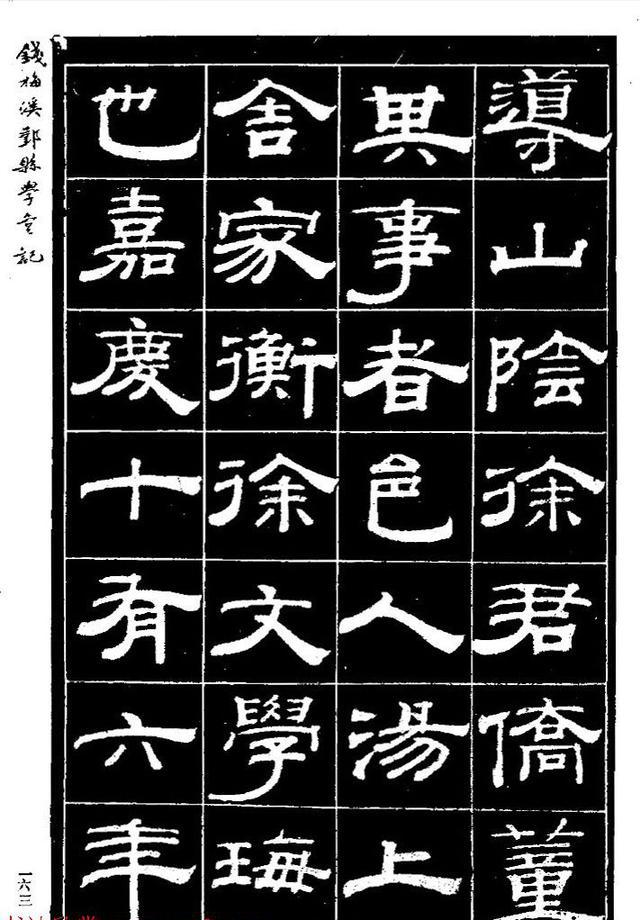 導山陰徐君僑董
其事者邑人湯上
舍家衡徐文學珻
也嘉慶十有六年
錢梅溪縣學記
一六三